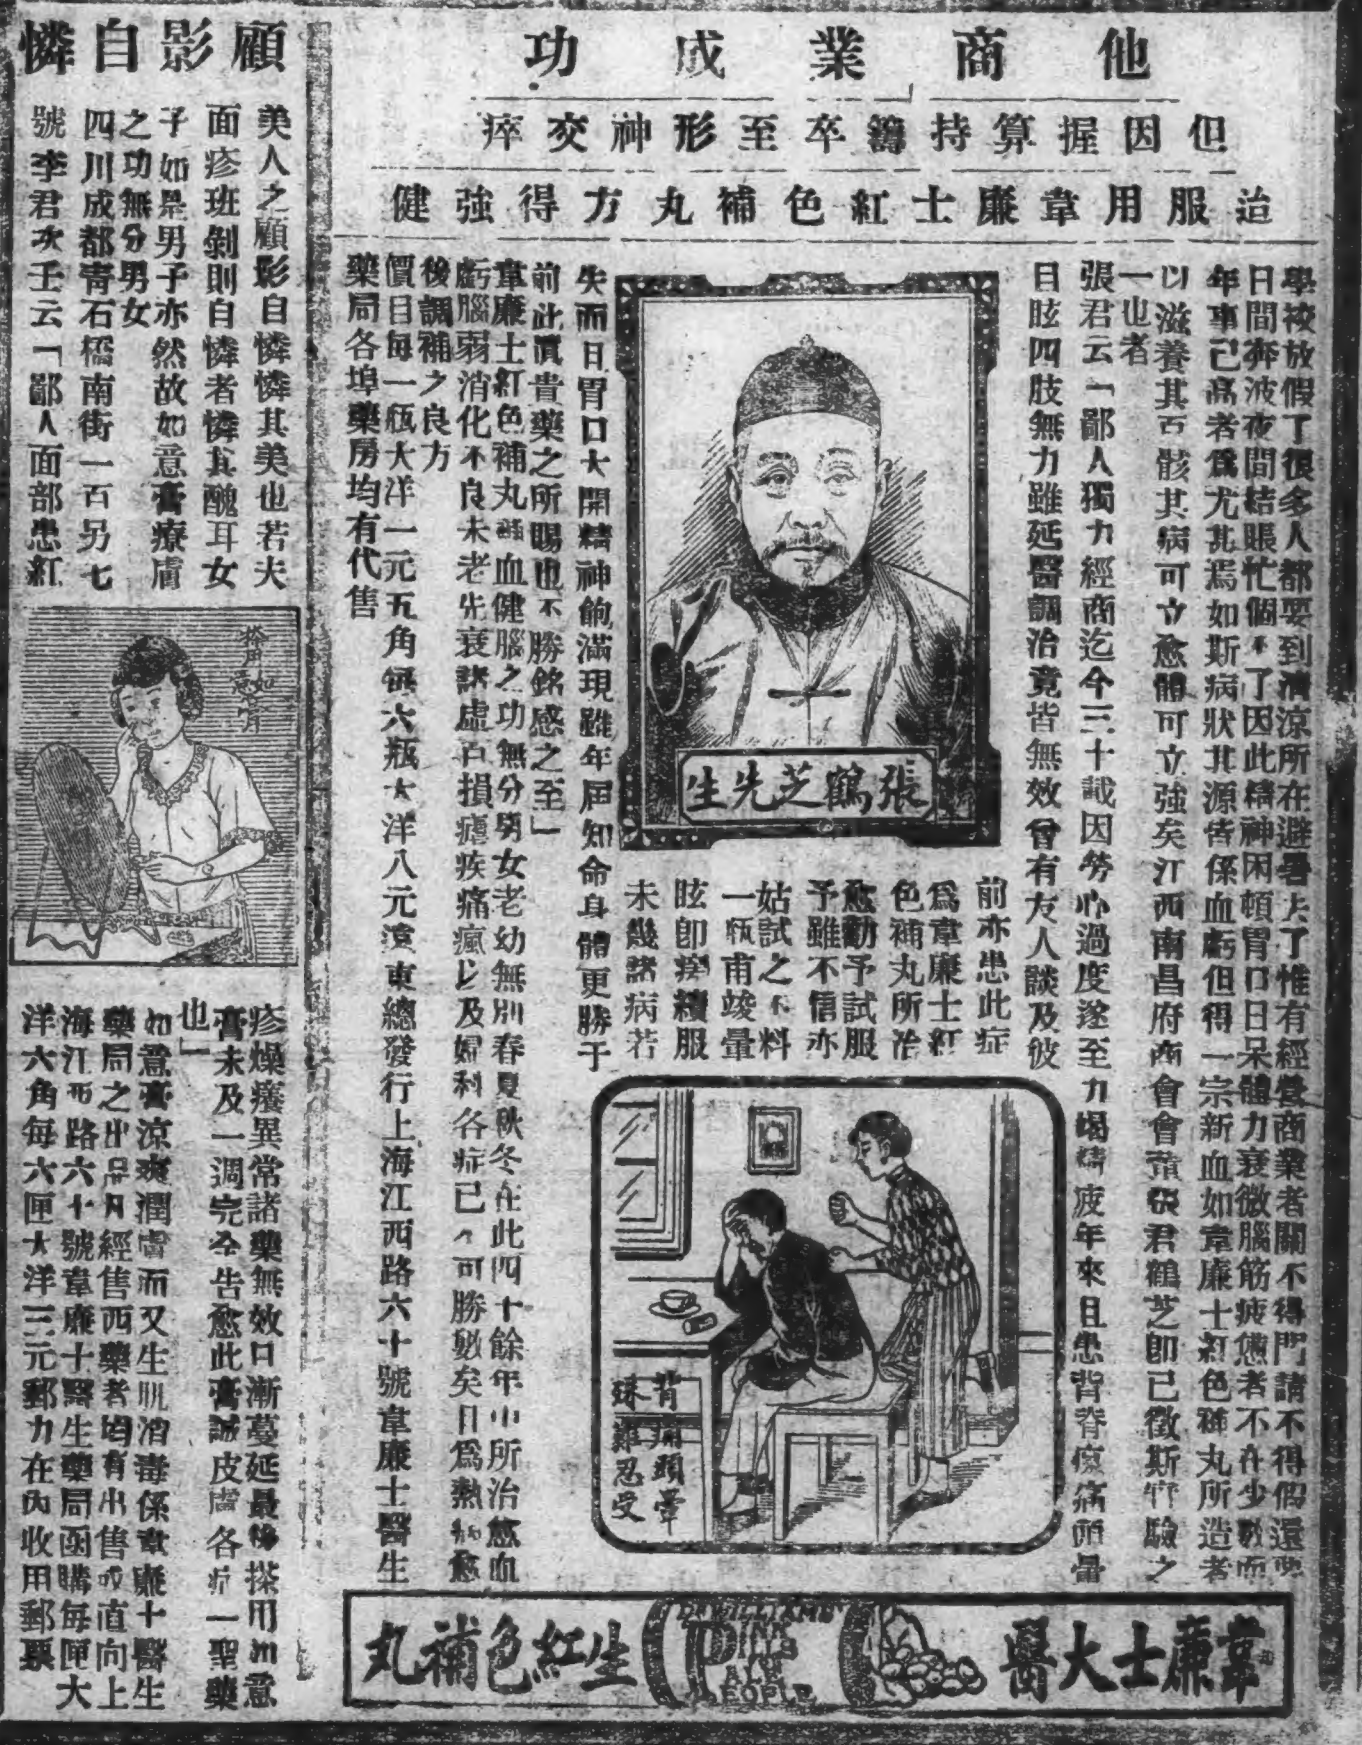 他商業成功
但因握算持籌卒至形神交瘁
迨服用韋廉士紅色補丸方得強健
學校放假了很多人都要到清涼所在避暑去了惟有經營商業者關不得門請不得假還要
日間奔波夜間結賬忙個不了因此精神困頓胃口日呆體力衰微腦筋疲憊者不在少數而
年事已高者爲尤甚焉如斯病狀其源皆係血虧但得一宗新血如韋廉士紅色補丸所造者
以滋養其百骸其病可立愈體可立強矣江西南昌府商會會董張君鶴芝卽已徵斯言驗之
一也者
張君云「鄙人獨力經商迄今三十載因勞心過度遂至力竭精疲年來且患背脊痠痛頭暈
目眩四肢無力雖延醫調治竟皆無效曾有友人談及彼
前亦患此症
爲韋廉士紅
色補丸所治
愈勸予試服
予雖不信亦
姑試之不料
一瓶甫竣暈
眩卽痊續服
未幾諸病若
失而日胃口大開精神飽滿現雖年屆知命身體更勝于
前此實貴藥之所賜也不勝銘感之至」
韋廉士紅色補丸補血健腦之功無分男女老幼無別春夏秋冬在此四十餘年中所治愈血
虧腦弱消化不良未老先衰諸虛百損瘧疾痛瘋以及婦科各症已不可勝數矣且爲熱病愈
後調補之良方
價目每一瓶大洋一元五角每六瓶大洋八元遠東總發行上海江西路六十號韋廉士醫生
藥局各埠藥房均有代售
張鶴芝先生
背痛頭暈
殊難忍受
韋廉士大醫生紅色補丸
DR WILLIAMS'
PINK
PILLS
PALE
PEOPLE
顧影自憐
美人之顧影自憐憐其美也若夫
面疹班剝則自憐者憐其醜耳女
子如是男子亦然故如意膏療膚
之功無分男女
四川成都靑石橋南街一百另七
號李君次壬云「鄙人面部患紅
搽用如意膏
疹燥癢異常諸藥無效日漸蔓延最後搽用如意
膏未及一週完全告愈此膏誠皮膚各症一聖藥
也」
如意膏涼爽潤膚而又生肌消毒係韋廉士醫生
藥局之出品凡經售西藥者均有出售或直向上
海江西路六十號韋廉士醫生藥局函購每匣大
洋六角每六匣大洋三元郵力在內收用郵票